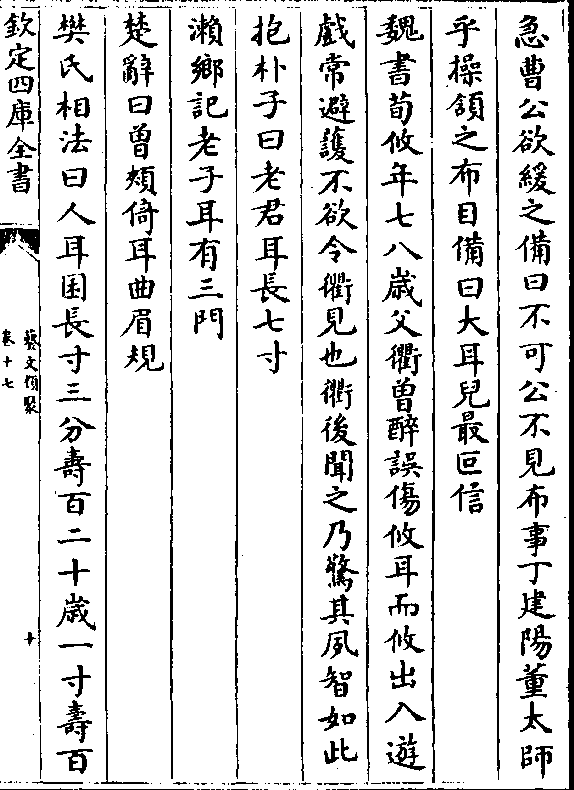 急曹公欲緩之備曰不可公不見布事丁建陽董太師
乎操頷之布目備曰大耳兒最叵信
魏書荀攸年七八歳父衢曽醉誤傷攸耳而攸出入遊
戲常避護不欲令衢見也衢後聞之乃驚其夙智如此
抱朴子曰老君耳長七寸
瀨鄉記老子耳有三門
楚辭曰曽頰倚耳曲眉規
樊氏相法曰人耳困長寸三分壽百二十歳一寸壽百
欽定四庫全書
藝文類聚
卷十七
十